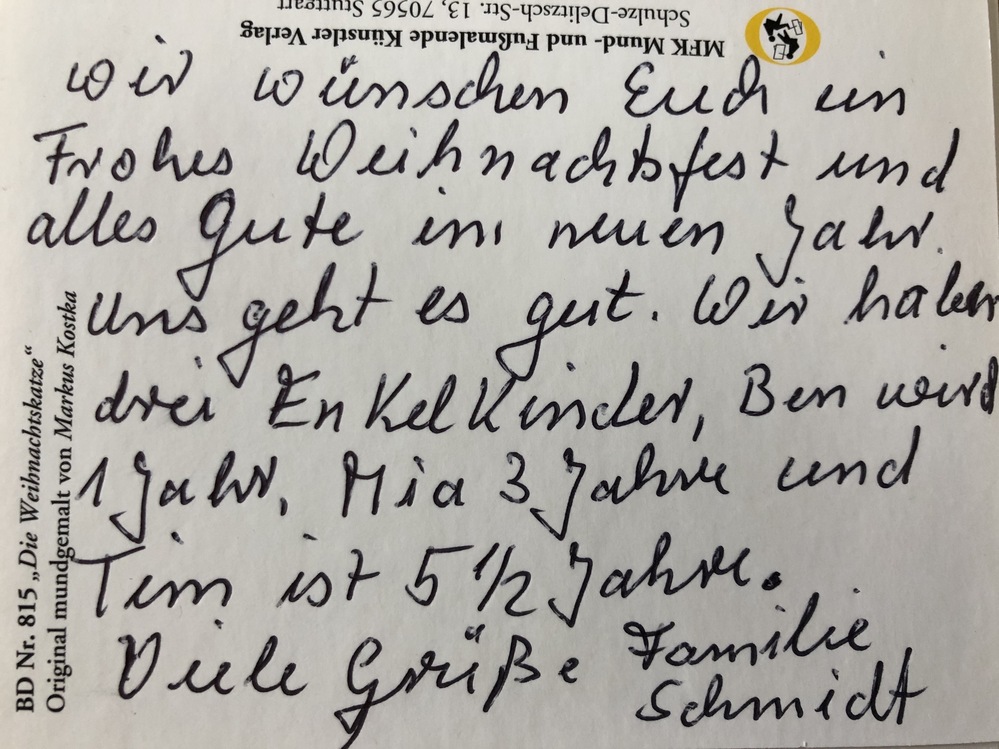 Schulze-Delitzsch-Str. 13, 70565 Stuttgart
MFK Mund- und Fußmalende Künstler Verlag
Wir wünschen Euch ein
Frohes Weihnachtsfest und
alles Gute im neuen Jahr.
Uns geht es gut. Wir haben
drei Enkelkinder, Ben wird
1 Jahr, Mia 3 Jahre und
Tim ist 5 1/2 Jahre.
Viele Grüße Familie
Schmidt
BD Nr. 815 „Die Weihnachtskatze“
Original mundgemalt von Markus Kostka